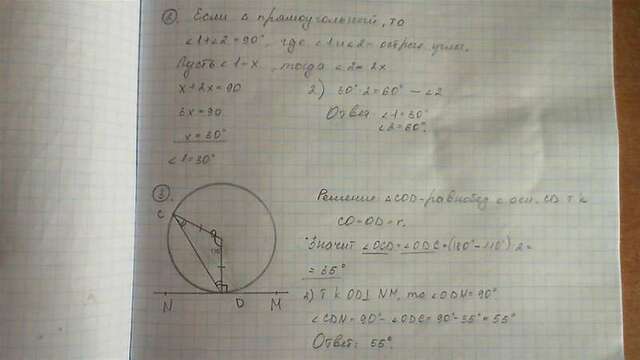 ②. Если Δ прямоугольный, то
∠1+∠2=90°, где ∠1 и ∠2 - острые углы.
Пусть ∠1-x, тогда ∠2=2x
x+2x=90
3x=90
x=30°
∠1=30°
2) 30°·2=60° - ∠2
Ответ ∠1=30°
∠2=60°.
③.
C
O
N D M
Решение ΔCOD-равнобед с осн. CD т к
CO=OD=r.
Значит ∠OCD=∠ODC=(180°-110°):2=
=35°
2) Т к OD⊥NM, то ∠ODN=90°
∠CDN=90°-∠ODC=90°-35°=55°
Ответ: 55°.